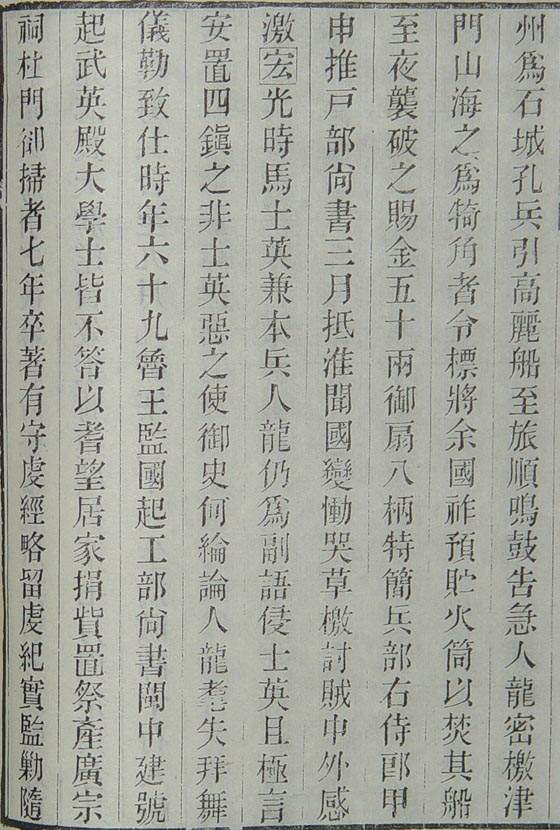 州爲石城孔兵引高麗船至旅順鳴鼓吿急人龍密檄津
門山海之爲犄角者令標將余國祚預貯火筒以焚其船
至夜襲破之賜金五十兩御扇八柄特簡兵部右侍郎甲
申推戸部尙書三月抵淮聞國變慟哭草檄討賊中外感
激宏光時馬士英兼本兵人龍仍爲副語侵士英且極言
安置四鎭之非士英惡之使御史何綸論人龍耄失拜舞
儀勒致仕時年六十九魯王監國起工部尙書閩中建號
起武英殿大學士皆不答以耆望居家捐貲置祭產廣宗
祠杜門卻掃者七年卒著有守虔經略留虔紀實監勦隨